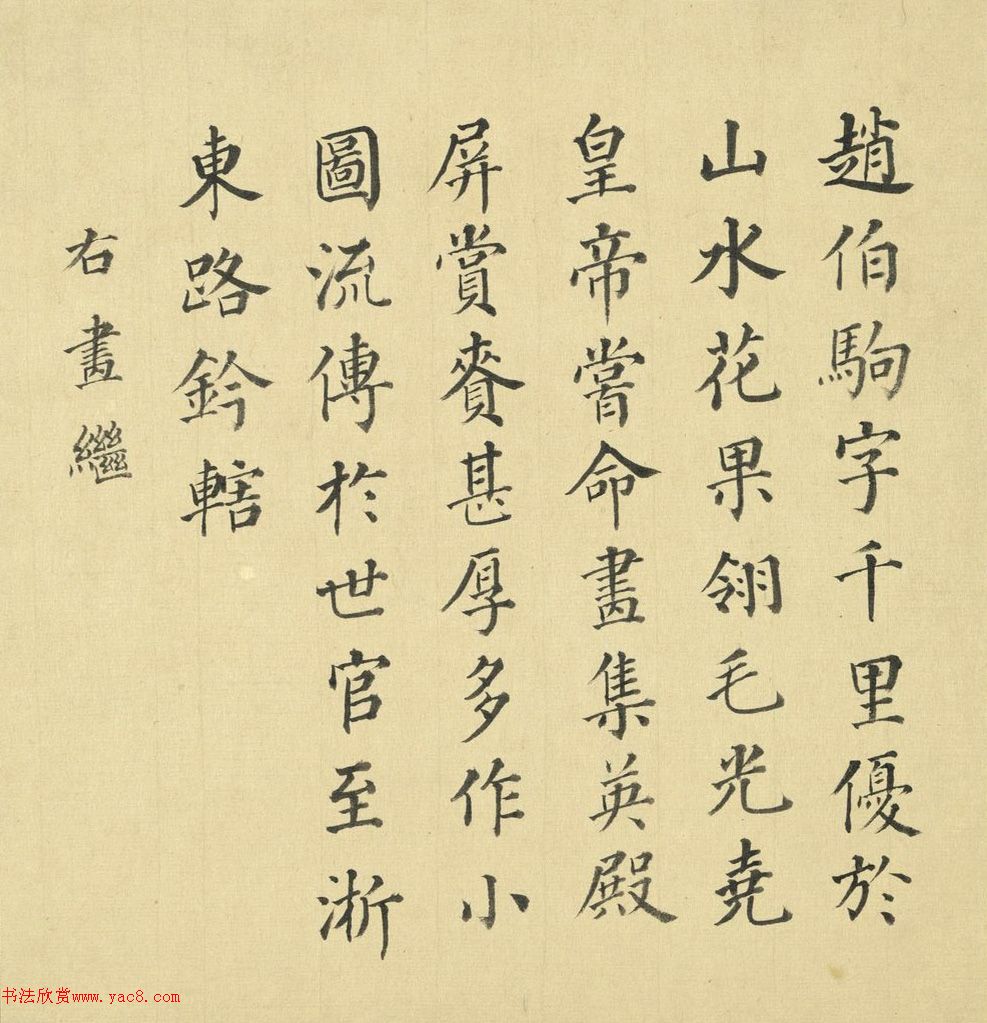 趙伯駒字千里優於
山水花果翎毛光堯
皇帝嘗命畫集英殿
屏賞賚甚厚多作小
圖流傳於世官至淅
東路鈐轄
右畫繼
书法欣赏www.yac8.com